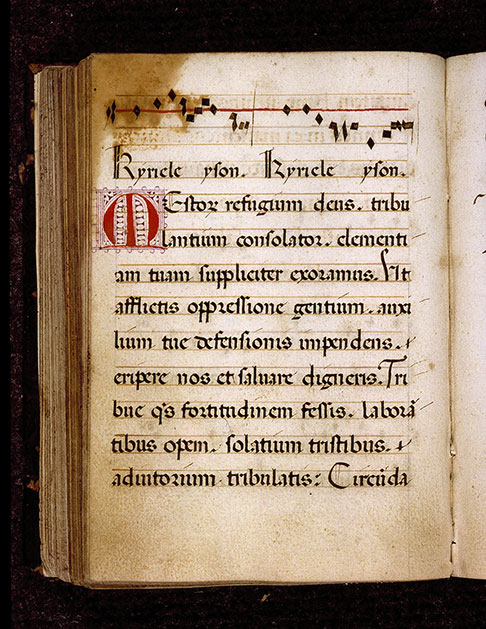 Kyriele yson. Kyriele yson.
MEstor refugium deus. tribu
lantium consolator. clementi
am tuam suppliciter exoramus. Ut
afflictis oppressione gentium. auxi
lium tue defensionis impendens. ⁊
eripere nos et saluare digneris. Tri
bue q̄s fortitudinem fessis. laborā
tibus opem. solatium tristibus. ⁊
adiutorium tribulatis: Circūda